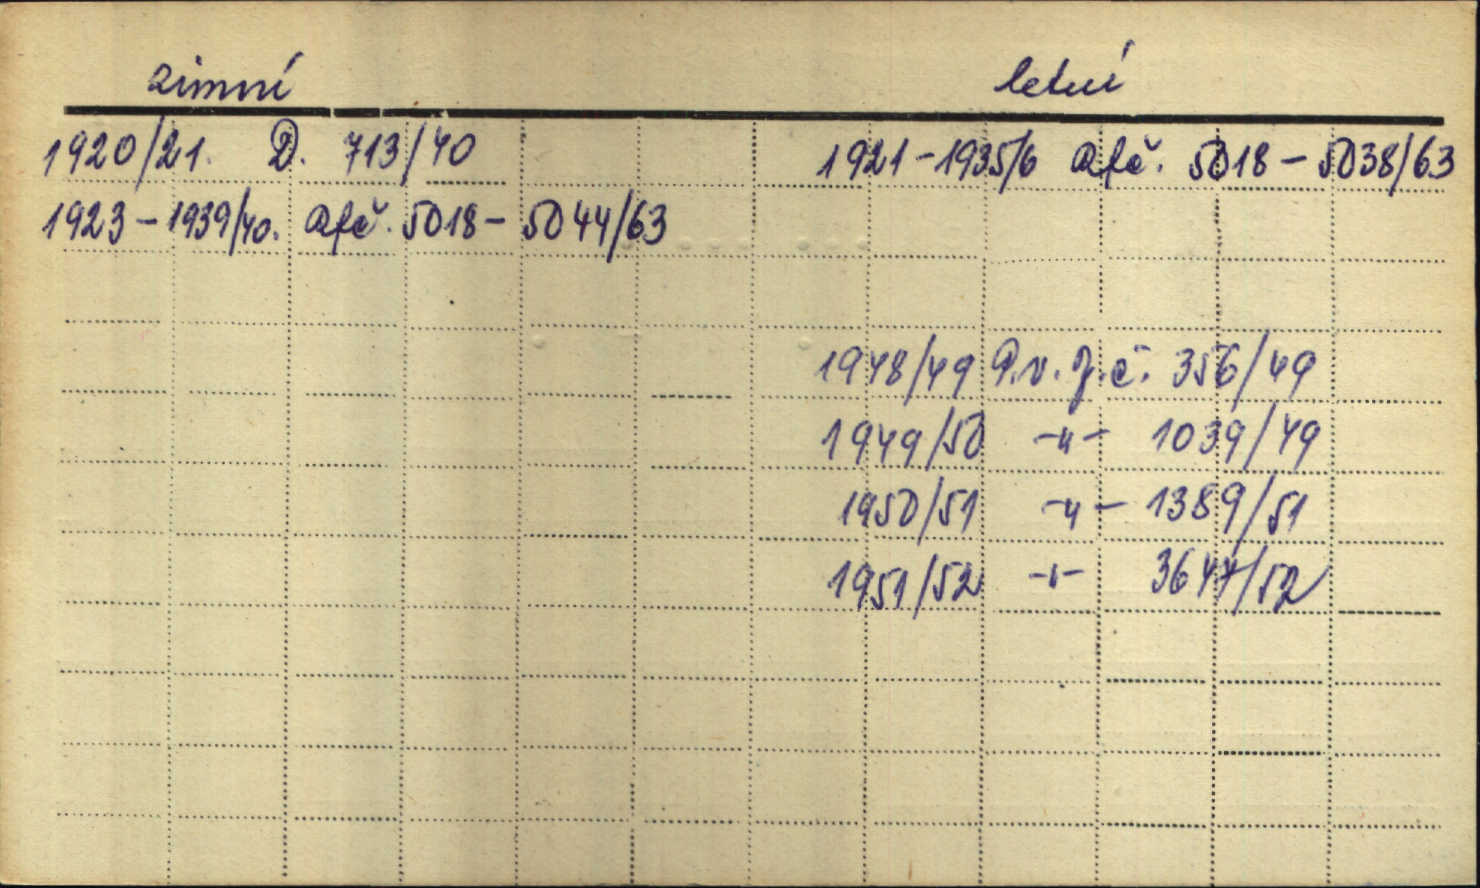 zimní
letní
1920/21. D. 713/40
1921-1935/6 Rfč. 5018-5038/63
1923-1939/40. Rfč. 5018-5044/63
1948/49 P.v.J.č. 356/49
1949/50 -"- 1039/49
1950/51 -"- 1389/51
1951/52 -"- 3644/52